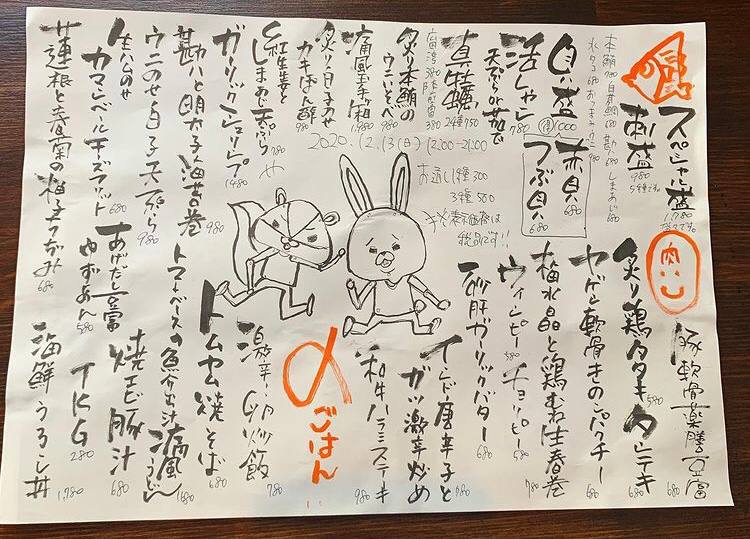 スペシャル盛
1,780
刺盛
980
5種です。
本鮪 780 自家製
しまあじ 680
水タコ 680
貝盛
1000
赤貝 680
つぶ貝 680
活しゃこ
天ぷらor茹で
780
真牡蠣
2ヶ種 750
炙り本鮪の
ウニいくらのせ 980
痛風玉手箱
1,980
炙り白子のせ
カキぽん酢 980
紅生姜と
しまあじ天ぷら
780
ガーリックシュリンプ
1480
勘八と明太子海苔巻
980
ウニのせ白子天ぷら
980
生ハムのせ
カマンベールチーズフリット
680
蓮根と春菊の柚子つかみ
680
2020.12.13(日) 12:00~21:00
お通し1種300
3種500
※表示価格は
税別です!!
肉
豚軟骨薬膳豆富
680
炙り鶏タタキ 580
タレテキ
680
ヤゲン軟骨きのこパクチー
680
梅水晶と鶏むね生春巻
780
ウインピー 580
チョリピー 680
砂肝ガリックバター
680
インド唐辛子と
ガツ激辛炒め
780
和牛ハラミステーキ
980
〆ごはん
激辛卵炒飯
780
トムヤム焼そば
680
トマトベースの魚介出汁痛風うどん
1680
あげだし豆富
ゆずあん
580
焼エビ豚汁
680
TKG
280
海鮮うるし丼
1,780